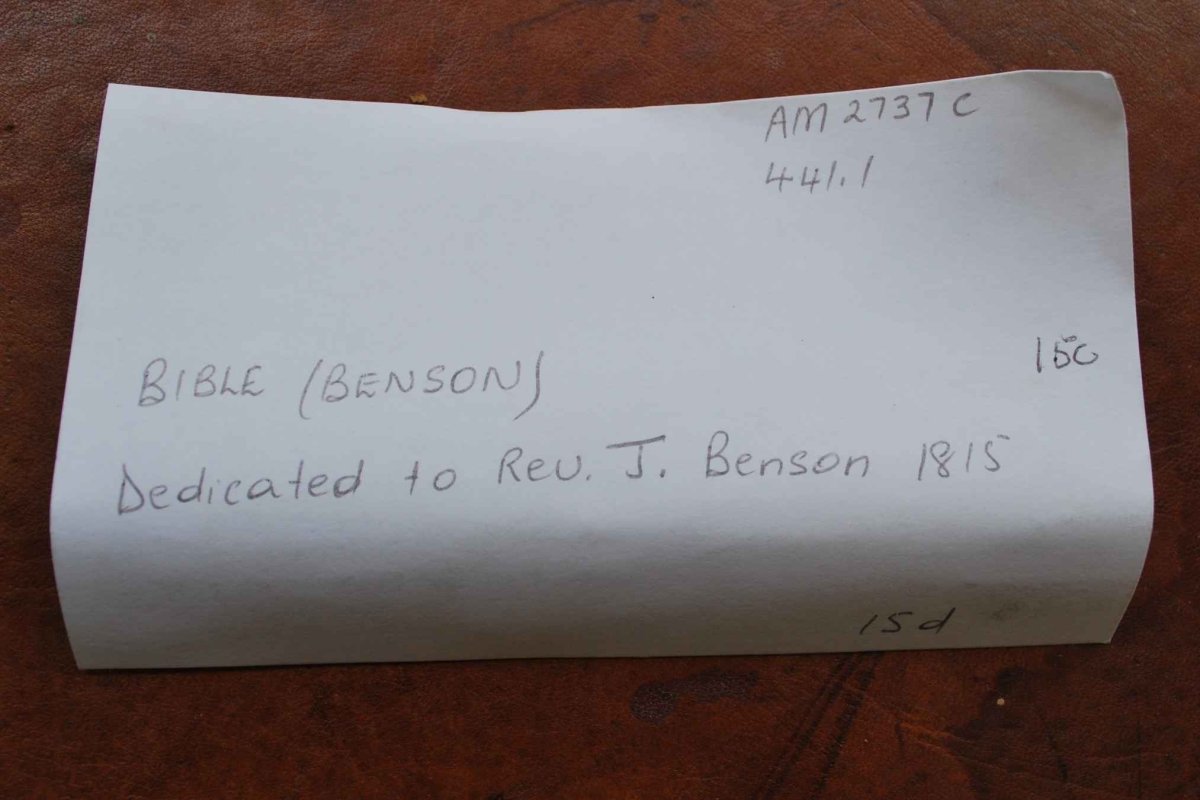 AM 2737 C
441.1
150
BIBLE (BENSON)
Dedicated to Rev. J. Benson 1815
15d